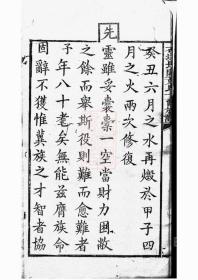 癸丑六月之水再燬於甲子四
月之火兩次修復
先
靈雖妥囊橐一空當財力困敝
之餘而舉斯役則難而愈難者
予年八十耄矣無能茲膺族命
固辭不獲惟冀族之才智者協